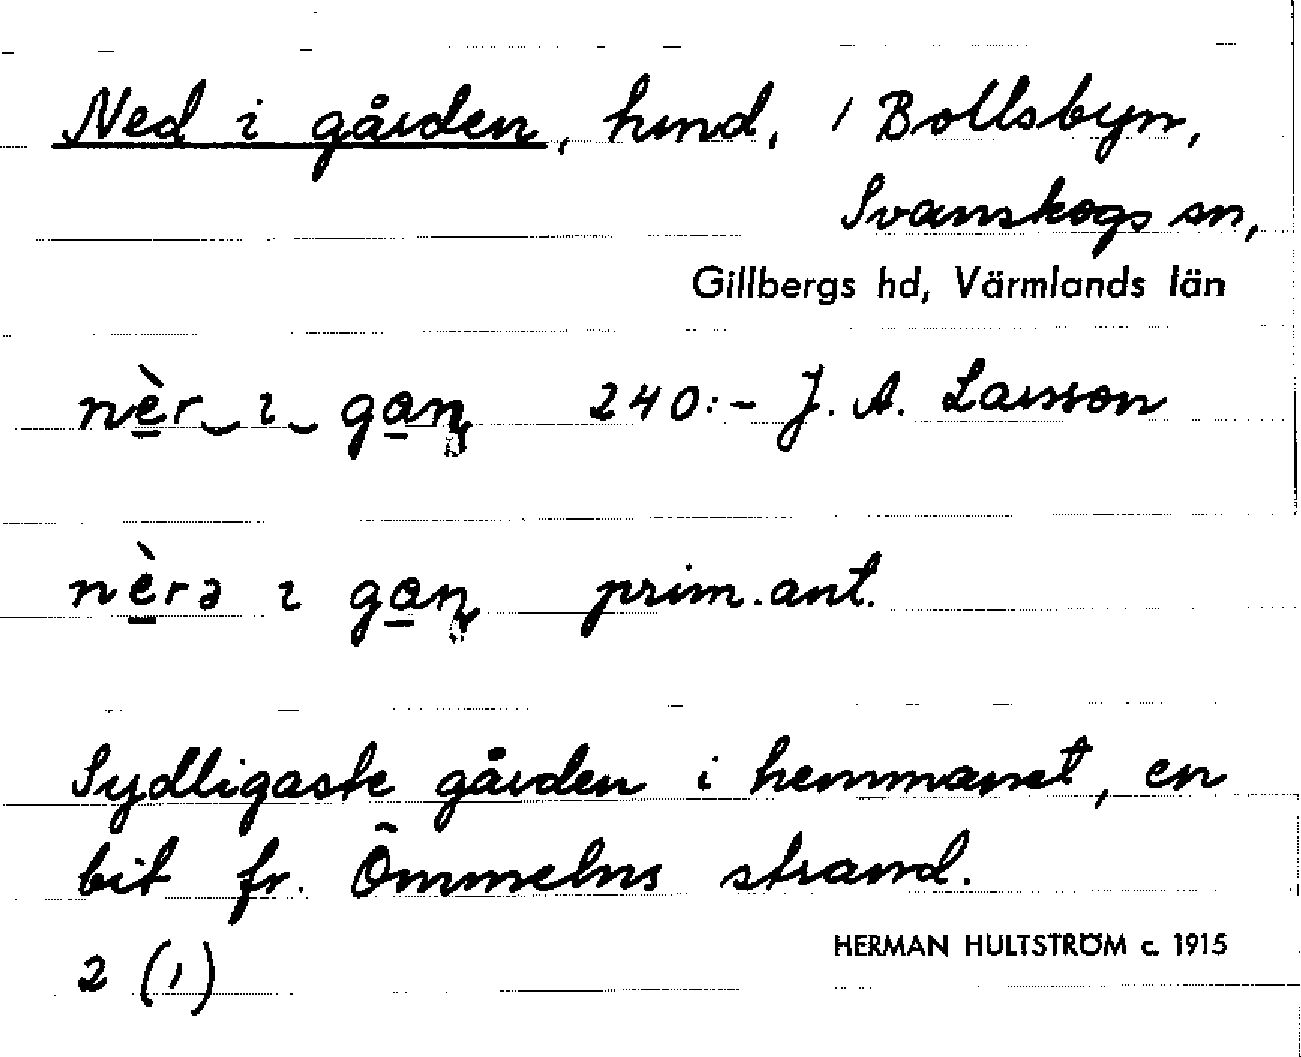 Ned i gården, hmd, 1 Bollsbyn,
Svanskogs sn,
Gillbergs hd, Värmlands län
nèr‿ı‿gaɳ 240:- J. A. Larsson
nèrə ı gaɳ prim.ant.
Sydligaste gården i hemmanet, en
bit fr. Ömmelns strand.
2 (1)
HERMAN HULTSTRÖM c. 1915